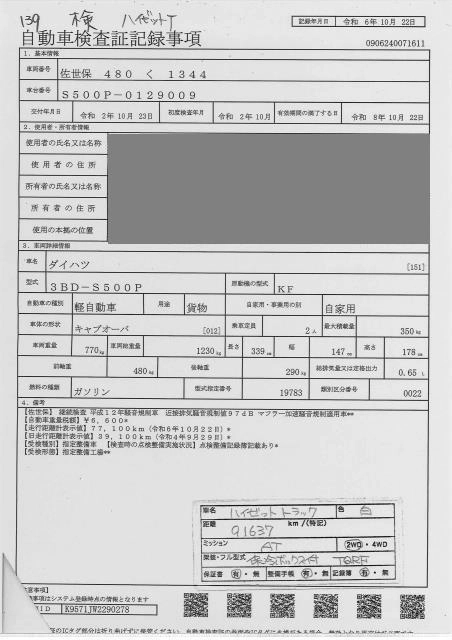 139 検 ハイゼットT
記録年月日 令和 6年10月 22日
自動車検査証記録事項
0906240071611
1. 基本情報
車両番号 佐世保 480 く 1344
車台番号 S500P-0129009
交付年月日 令和 2年10月 23日 初度検査年月 令和 2年10月 有効期間の満了する日 令和 8年10月 22日
2. 使用者・所有者情報
使用者の氏名又は名称
使用者の住所
所有者の氏名又は名称
所有者の住所
使用の本拠の位置
3. 車両詳細情報
車名 ダイハツ [151]
型式 3BD-S500P 原動機の型式 KF
自動車の種別 軽自動車 用途 貨物 自家用・事業用の別 自家用
車体の形状 キャブオーバ [012] 乗車定員 2人 最大積載量 350kg
車両重量 770kg 車両総重量 1230kg 長さ 339cm 幅 147cm 高さ 178cm
前軸重 480kg 後軸重 290kg 総排気量又は定格出力 0.65 L
燃料の種類 ガソリン 型式指定番号 19783 類別区分番号 0022
4. 備考
【佐世保】 継続検査 平成12年騒音規制車 近接排気騒音規制値97dB マフラー加速騒音規制適用車**
【自動車重量税額】¥6,600*
【走行距離計表示値】77,100km(令和6年10月22日)*
【旧走行距離計表示値】39,100km(令和4年9月29日)*
【受検種別】指定整備車 【検査時の点検整備実施状況】点検整備記録簿記載あり*
【受検形態】指定整備工場**
車名 ハイゼットトラック 色 白
距離 91637 km/(特記)
ミッション AT 2WD・4WD
架装・フル型式
保証書 有・無 整備手帳 有・無 記録簿 有・無
注意事項】
動車検査証はシステム登録時点の情報となります
K9571JW2290278